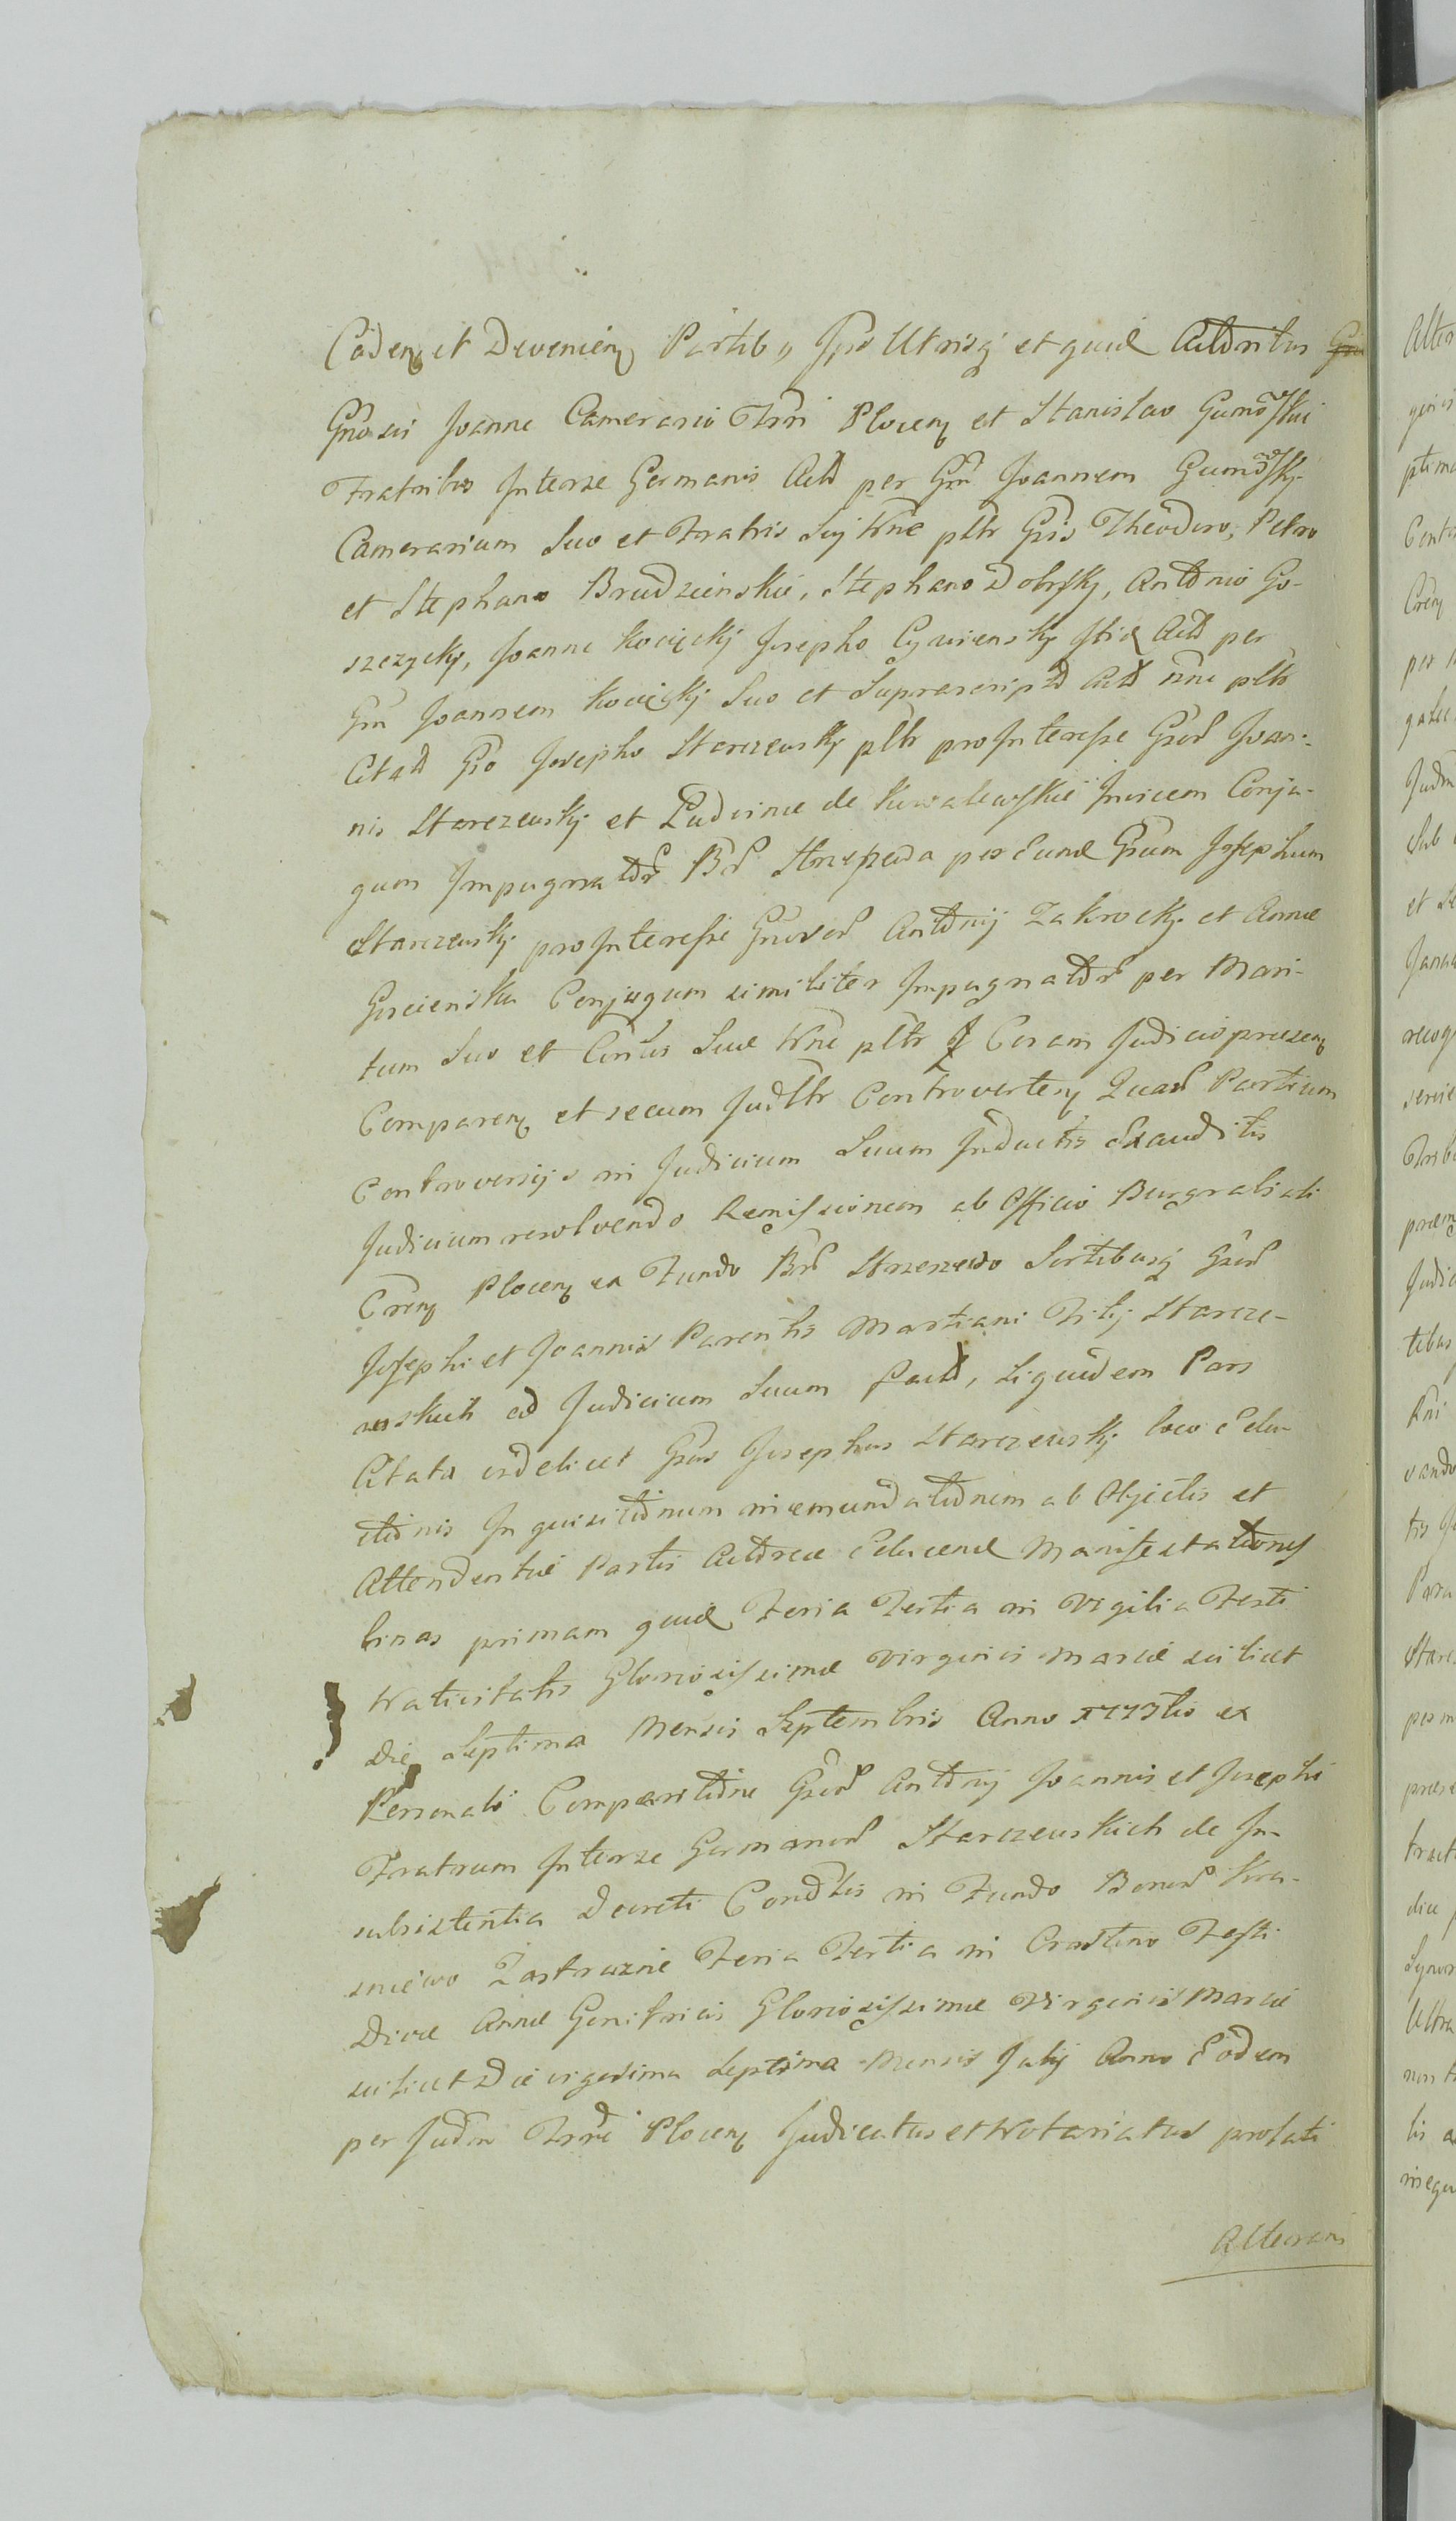 Caden et Devenien Partib, Ipis Utrisq et quid Actoribus
Gnosis Joanne Camerario Trri Plocen et Stanislao Gumowskie
Fratribus Interse Germanis Act per Gm Joannem Gumowsky
Camerarium Suo et Fratris Suj Nne pltr Gsis Theodoro, Petro
et Stephano Brudzienskie, Stephano Dobrsky, Antonio Go-
szczycky, Joanne Kocięcky Josepho Act per
Gm Joannem Kocięcky Suo et Suprascript Act nne pltr
Citat Gso Josepho Starczewsky pltr pro Interesse Gsor Joan-
nis Starczewsky et Ludvinae de Kuwalewskie Invicem Conju-
gum Impugnator Br Strzeszewa per Eund Gsum Josephum
Starczewsky pro Interesse Gnosor Antonij Zakrocky et Annae
Goscienska Conjugum similiter Impugnator per Mari-
tum Suo et Consus Suae Nne pltr Coram Judicio praesen
Comparen et secum Judltr Controverten Quar Partium
Controversijs in Judicium Suum Inductis Exauditis
Judicium resolvendo Remissionem ab Officio Burgrabiali
Cren Plocen ex Fundo Br Strzeszewo Sortibusq Gsor
Josephi et Joannis Parentis Martiani Filij Starcze-
wskich ad Judicium Suum fact, Siquidem Pars
Citata videlicet Gsus Josephus Starczewsky loco Edu-
ctionis Inquisitionum in emundationem ab Objectis et
Attendentiae Partis Actoreae Educend Manifestationes
binas primam quid Feria Tertia in Vigilia Festi
Nativitatis Gloriosissimae Virginis Mariae scilicet
Die Septima Mensis Septembris Anno ex
Personali Comparitione Gsor Antonij Joannis et Josephi
Fratrum Interse Germanor Starczewskich de In-
subsistentia Decreti Condlis in Fundo Bonor Kra-
sniewo Zastruznie Feria Tertia in Crastino Festi
Divae Annae Genitricis Gloriosissimae Virginis Mariae
scilicet Die vigesima Septima Mensis Julij Anno Eodem
per Judm Trrri Plocen Judicatus et Notariatus prolati
Alteram